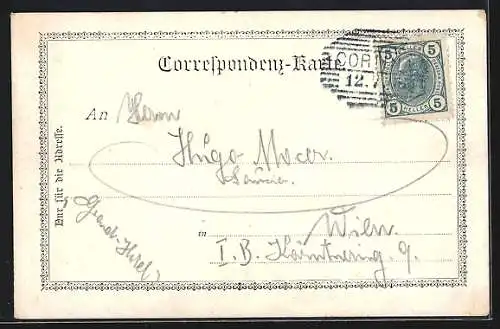 Correspondenz-Karte
CORT
12.7
5 5
5 HELLER 5
An Herrn
Hugo
in Wien
I. B. Kärntnerring 9.
Nur für die Adresse.
Grand-Hotel